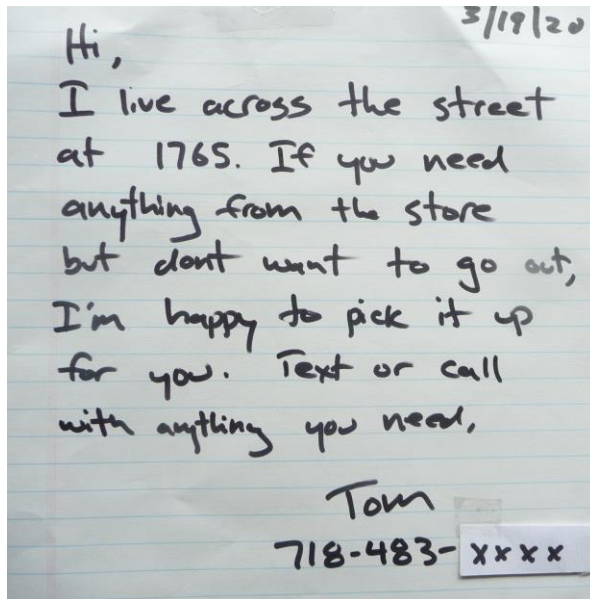 3/19/20
Hi,
I live across the street
at 1765. If you need
anything from the store
but dont want to go out,
I'm happy to pick it up
for you. Text or call
with anything you need,
Tom
718-483-xxxx